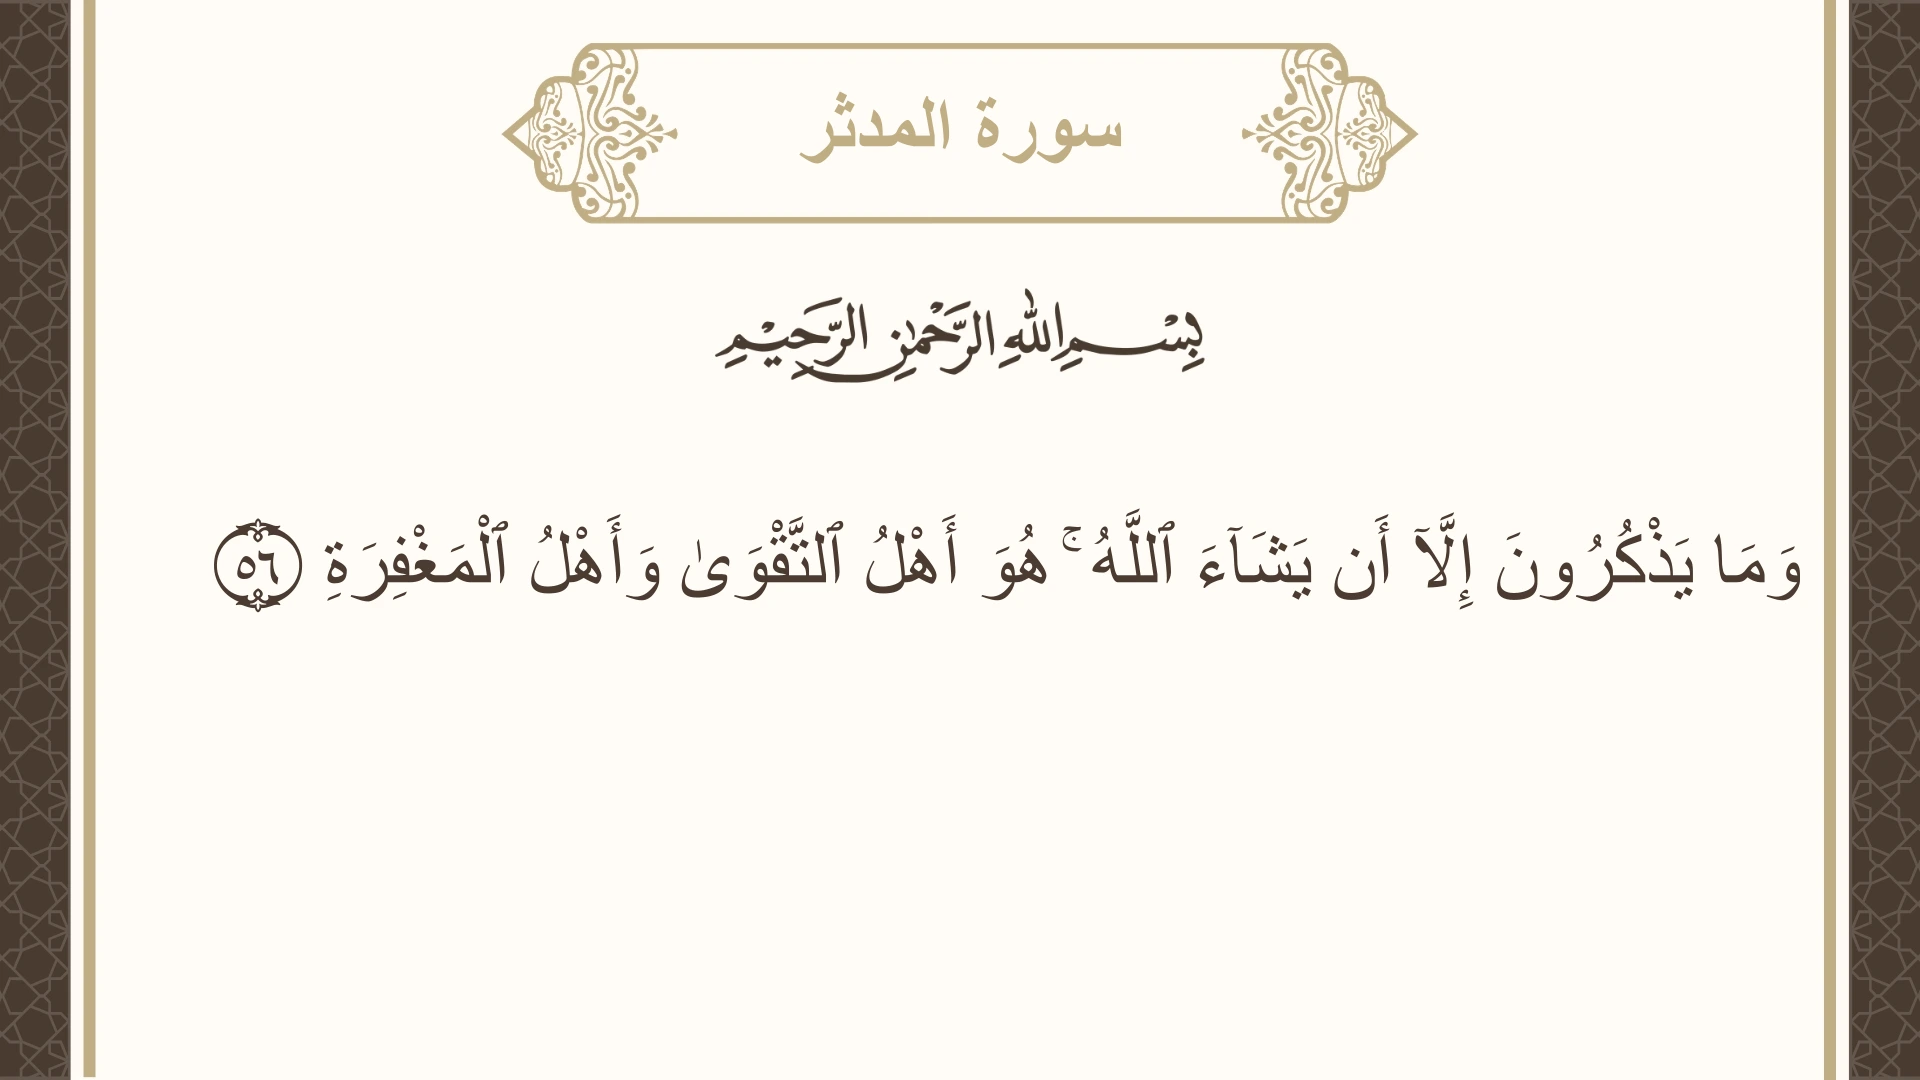 سورة المدثر
بِسْمِ اللهِ الرَّحْمٰنِ الرَّحِيْمِ
وَمَا يَذْكُرُونَ إِلَّآ أَن يَشَآءَ ٱللَّهُ ۚ هُوَ أَهْلُ ٱلتَّقْوَىٰ وَأَهْلُ ٱلْمَغْفِرَةِ ٥٦